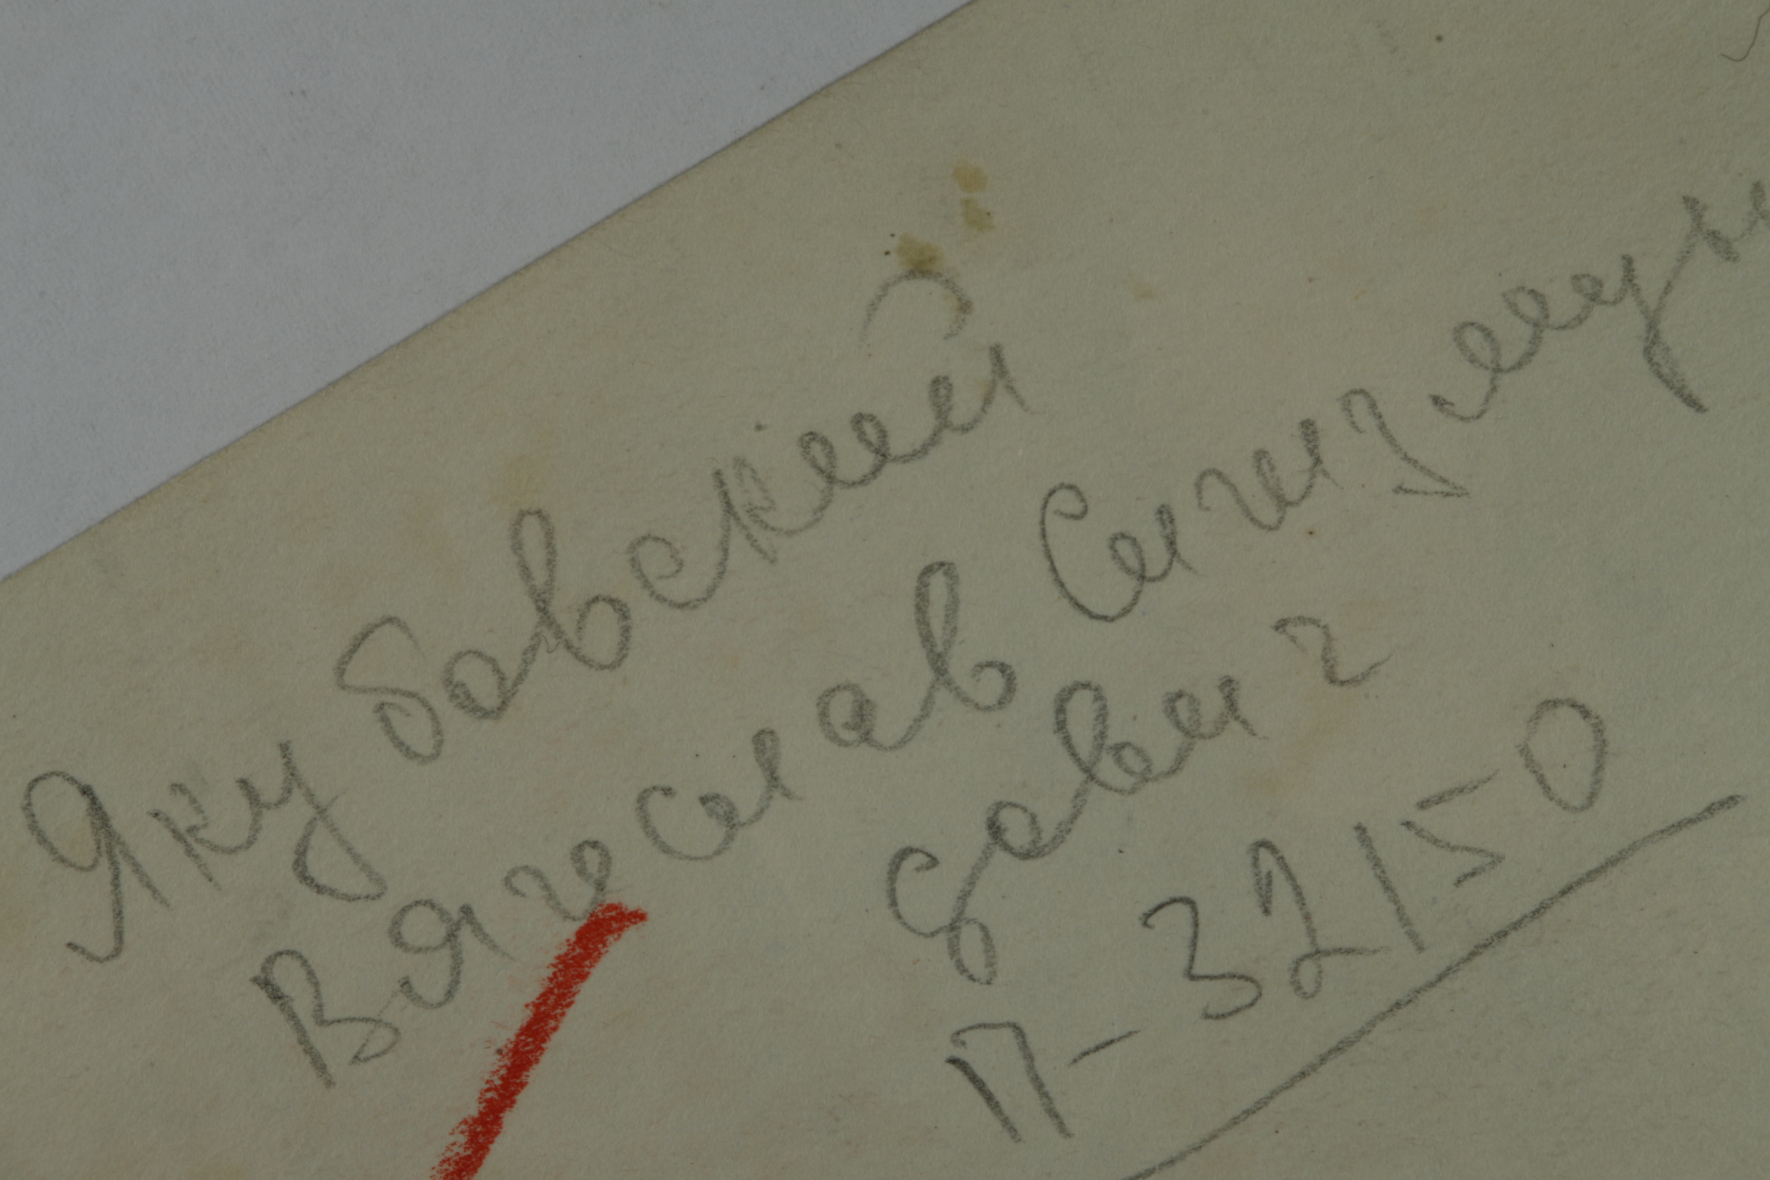 Якубовский
Вячеслав Сигизмун
дович
П-32150